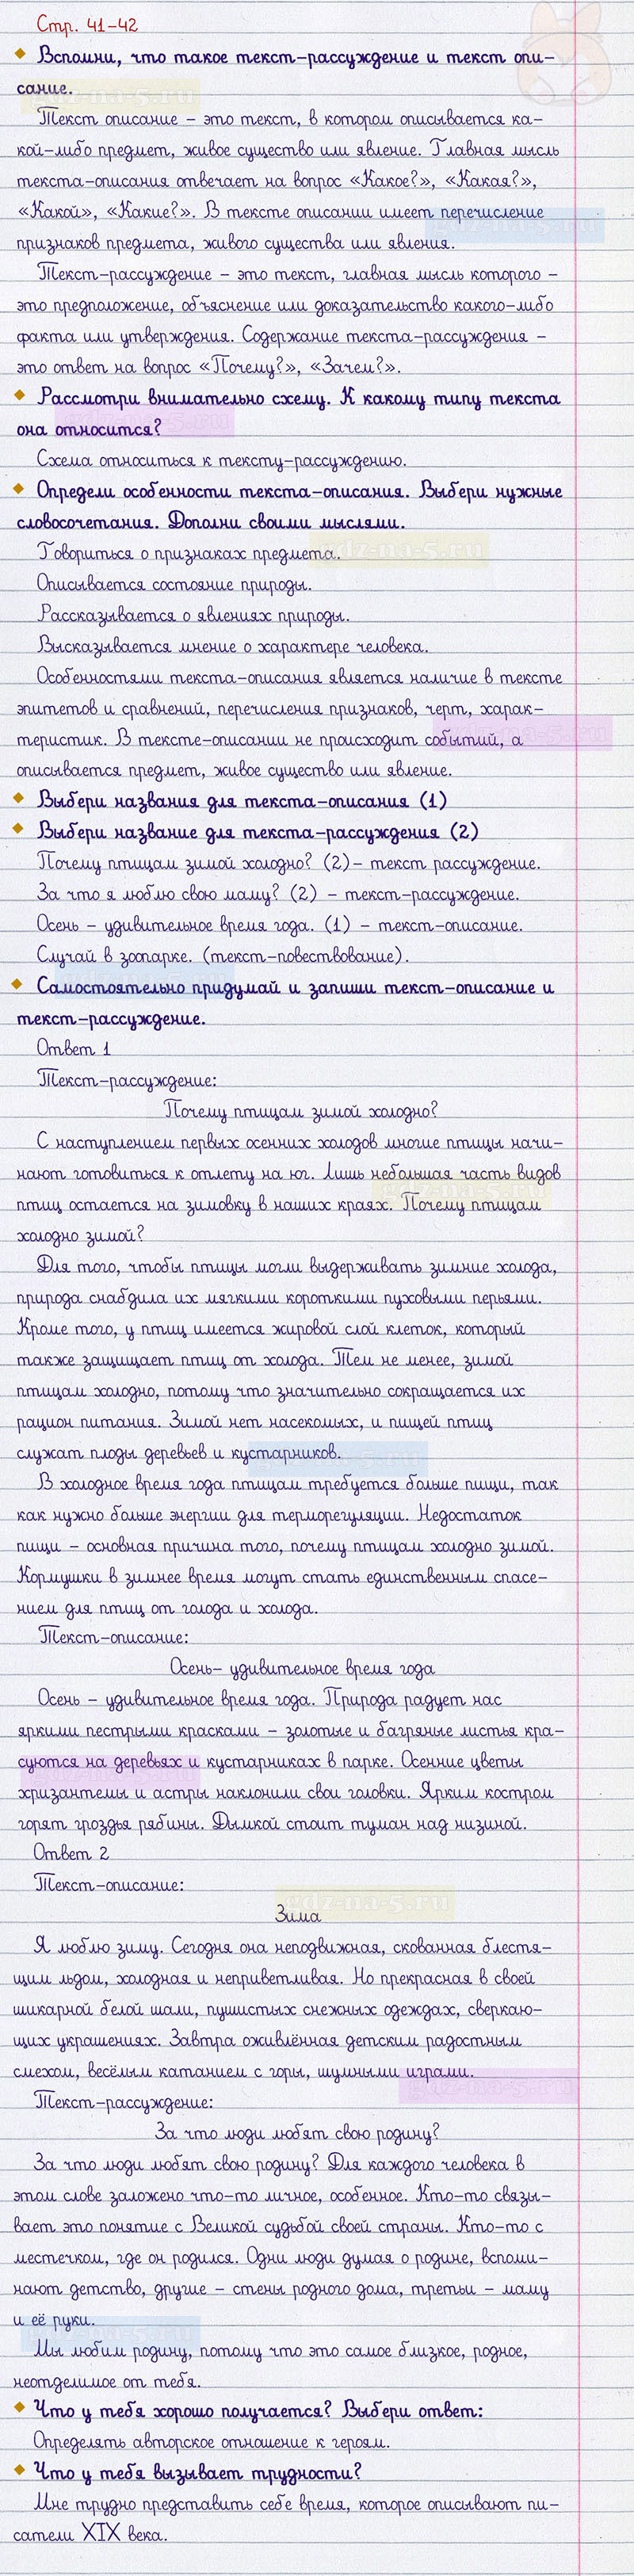 Стр. 41-42
Вспомни, что такое текст-рассуждение и текст опи-
сание.
Текст описание – это текст, в котором описывается ка-
кой-либо предмет, живое существо или явление. Главная мысль
текста-описания отвечает на вопрос «Какое?», «Какая?»,
«Какой», «Какие?». В тексте описании имеет перечисление
признаков предмета, живого существа или явления.
Текст-рассуждение – это текст, главная мысль которого –
это предположение, объяснение или доказательство какого-либо
факта или утверждения. Содержание текста-рассуждения –
это ответ на вопрос «Почему?», «Зачем?».
Рассмотри внимательно схему. К какому типу текста
она относится?
Схема относиться к тексту-рассуждению.
Определи особенности текста-описания. Выбери нужные
словосочетания. Дополни своими мыслями.
Говориться о признаках предмета.
Описывается состояние природы.
Рассказывается о явлениях природы.
Высказывается мнение о характере человека.
Особенностями текста-описания является наличие в тексте
эпитетов и сравнений, перечисления признаков, черт, харак-
теристик. В тексте-описании не происходит событий, а
описывается предмет, живое существо или явление.
Выбери названия для текста-описания (1)
Выбери название для текста-рассуждения (2)
Почему птицам зимой холодно? (2)– текст рассуждение.
За что я люблю свою маму? (2) – текст-рассуждение.
Осень – удивительное время года. (1) – текст-описание.
Случай в зоопарке. (текст-повествование).
Самостоятельно придумай и запиши текст-описание и
текст-рассуждение.
Ответ 1
Текст-рассуждение:
Почему птицам зимой холодно?
С наступлением первых осенних холодов многие птицы начи-
нают готовиться к отлету на юг. Лишь небольшая часть видов
птиц остается на зимовку в наших краях. Почему птицам
холодно зимой?
Для того, чтобы птицы могли выдерживать зимние холода,
природа снабдила их мягкими короткими пуховыми перьями.
Кроме того, у птиц имеется жировой слой клеток, который
также защищает птиц от холода. Тем не менее, зимой
птицам холодно, потому что значительно сокращается их
рацион питания. Зимой нет насекомых, и пищей птиц
служат плоды деревьев и кустарников.
В холодное время года птицам требуется больше пищи, так
как нужно больше энергии для терморегуляции. Недостаток
пищи – основная причина того, почему птицам холодно зимой.
Кормушки в зимнее время могут стать единственным спасе-
нием для птиц от голода и холода.
Текст-описание:
Осень– удивительное время года
Осень – удивительное время года. Природа радует нас
яркими пестрыми красками – золотые и багряные листья кра-
суются на деревьях и кустарниках в парке. Осенние цветы
хризантемы и астры наклонили свои головки. Ярким костром
горят гроздья рябины. Дымкой стоит туман над низиной.
Ответ 2
Текст-описание:
Зима
Я люблю зиму. Сегодня она неподвижная, скованная блестя-
щим льдом, холодная и неприветливая. Но прекрасная в своей
шикарной белой шали, пушистых снежных одеждах, сверкаю-
щих украшениях. Завтра оживлённая детским радостным
смехом, весёлым катанием с горы, шумными играми.
Текст-рассуждение:
За что люди любят свою родину?
За что люди любят свою родину? Для каждого человека в
этом слове заложено что-то личное, особенное. Кто-то связы-
вает это понятие с Великой судьбой своей страны. Кто-то с
местечком, где он родился. Одни люди думая о родине, вспоми-
нают детство, другие – стены родного дома, третьи – маму
и её руки.
Мы любим родину, потому что это самое близкое, родное,
неотделимое от тебя.
Что у тебя хорошо получается? Выбери ответ:
Определять авторское отношение к героям.
Что у тебя вызывает трудности?
Мне трудно представить себе время, которое описывают пи-
сатели XIX века.